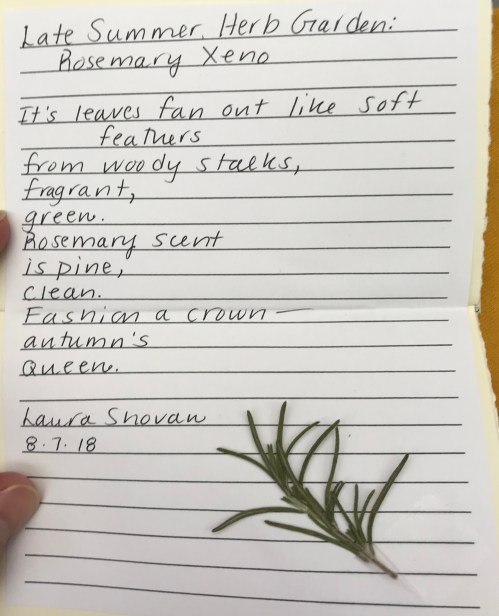 Late Summer Herb Garden:
Rosemary Xeno
It's leaves fan out like soft
feathers
from woody stalks,
fragrant,
green.
Rosemary scent
is pine,
clean.
Fashion a crown —
autumn's
queen.
Laura Shovan
8.7.18